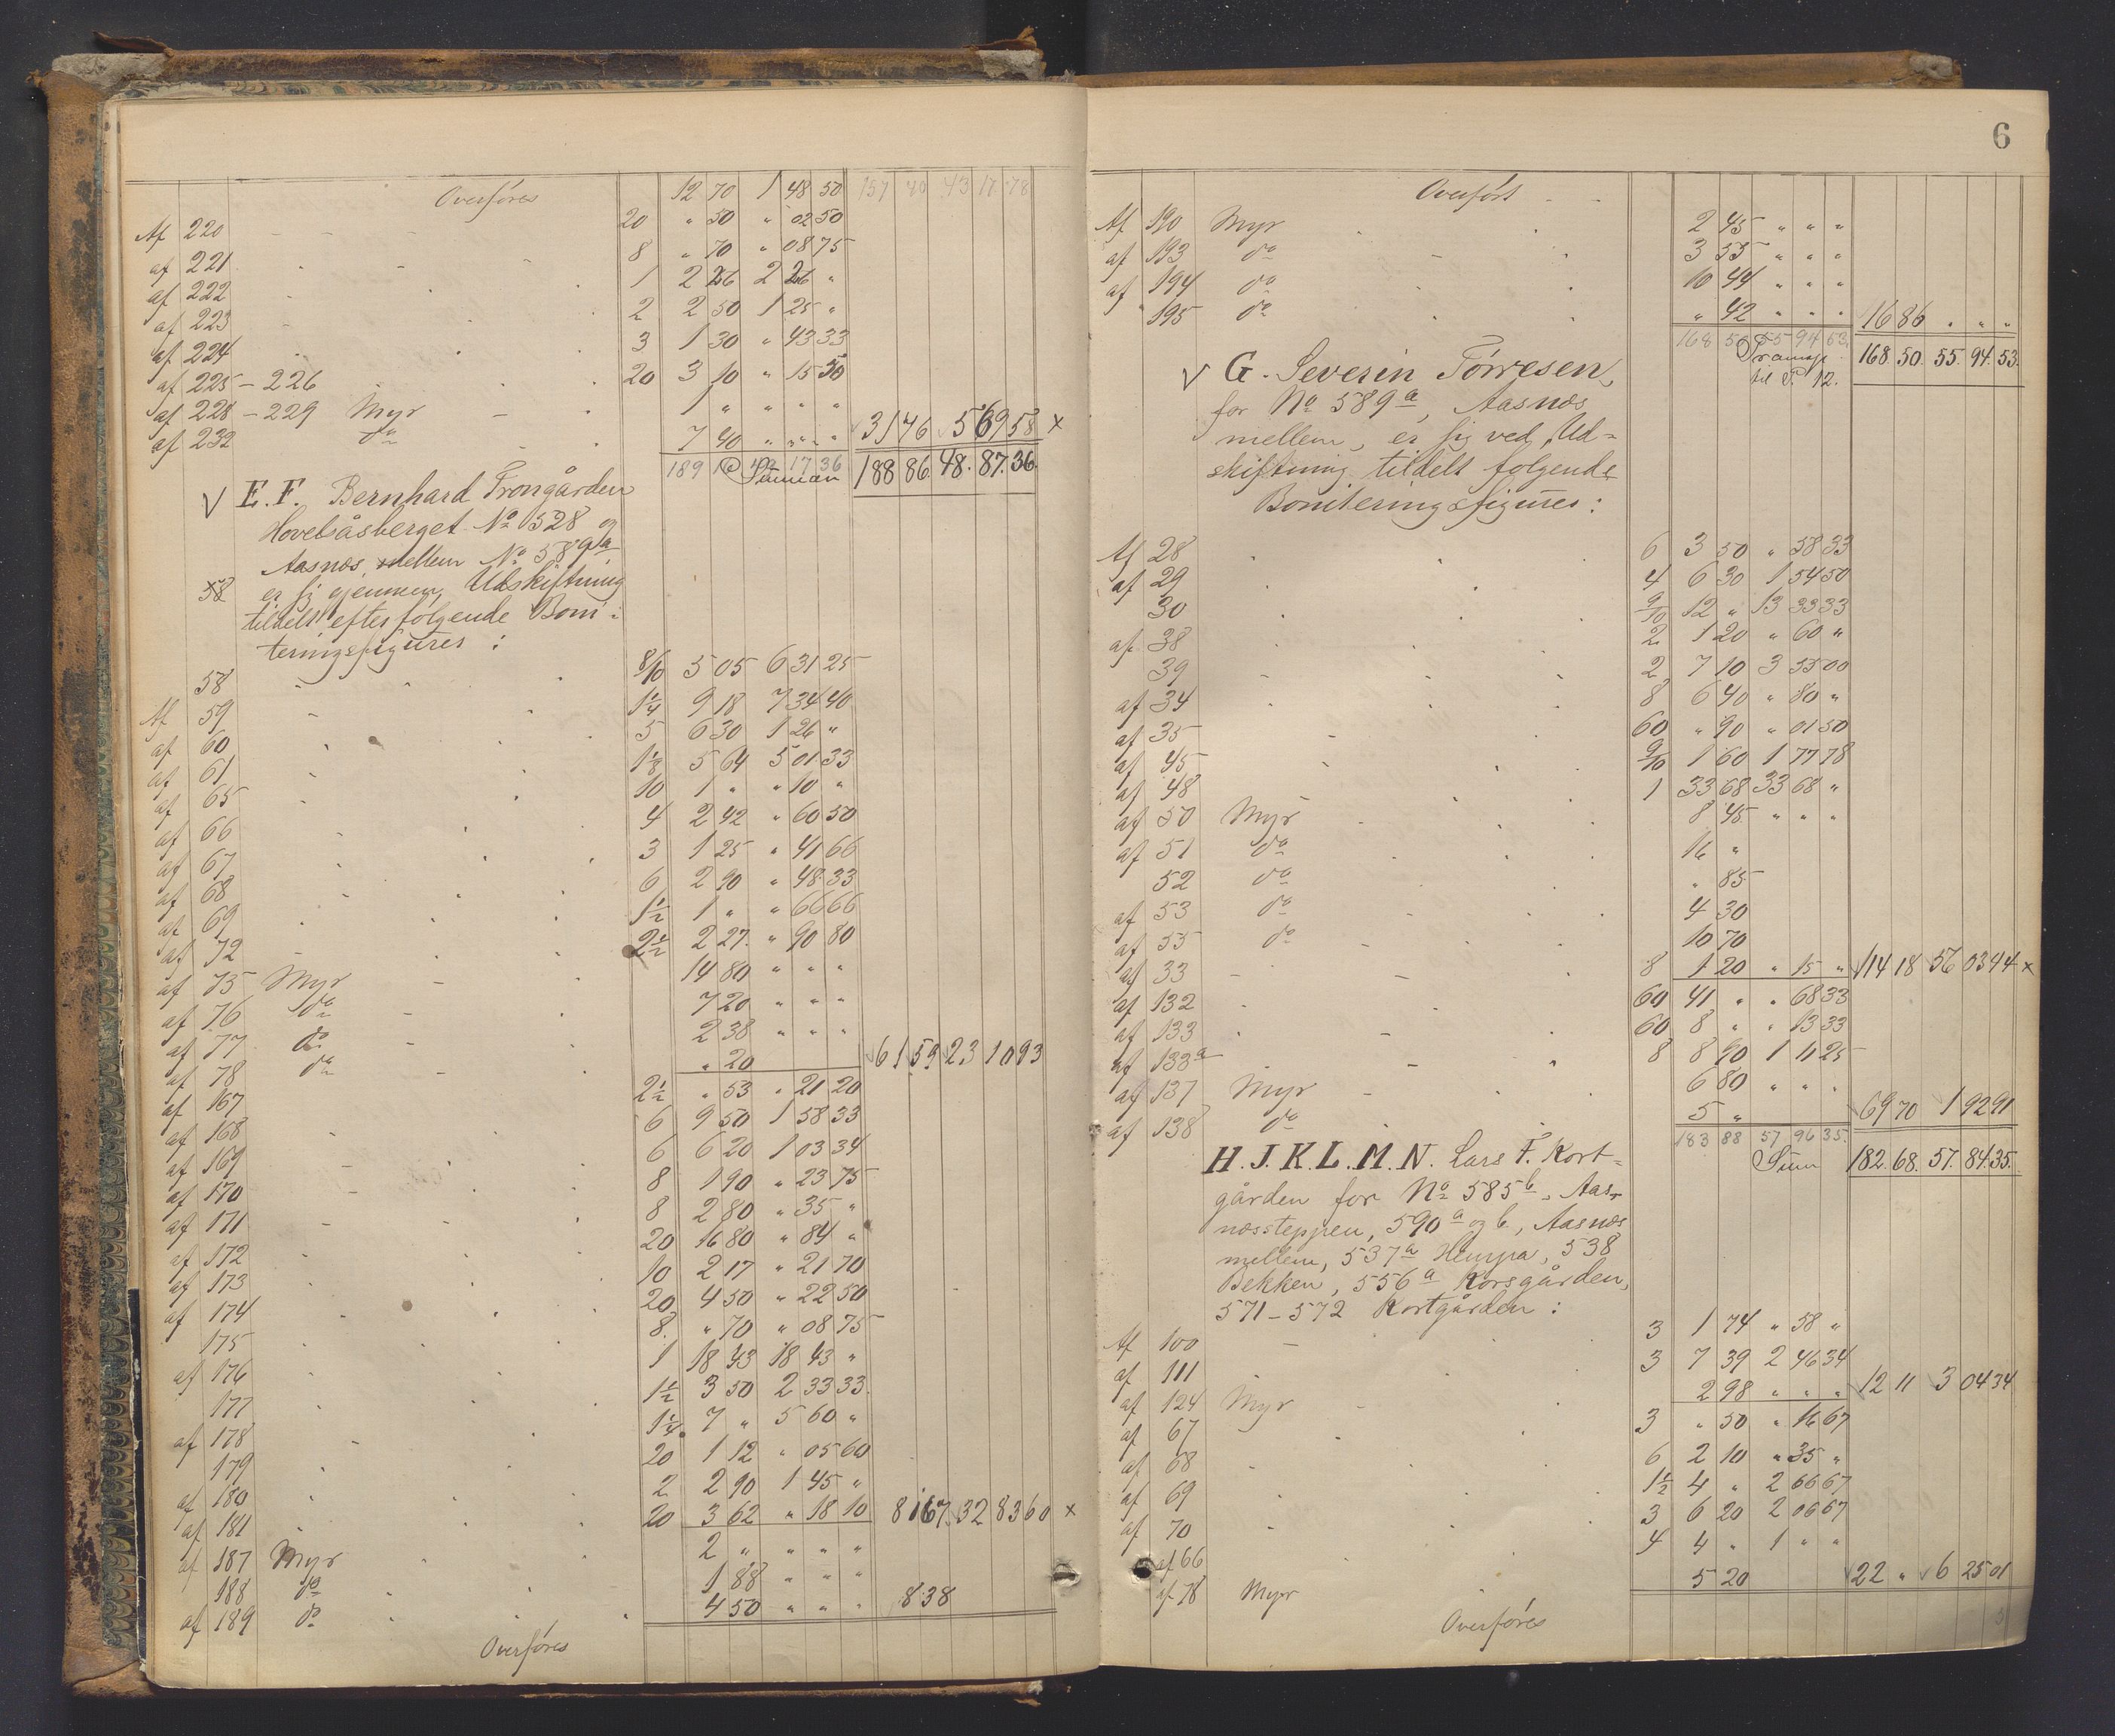 Overføres 12 70 1 48 50 157 40 43 17 78
Af 220 20 " 50 " 02 50
af 221 8 " 70 " 08 75
af 222 1 2 26 2 26 "
af 223 2 2 50 1 25 "
af 224 3 1 30 " 43 33
af 225 – 226 20 3 10 " 15 50
af 228 – 229 Myr 1 " " " "
af 232 do 7 40 " " " 31 46 5 69 58 x
Summen 188 86. 48. 87. 36.
V E. F. Bernhard Trongården
Hovelsåsberget No 528 og
Aasnæs mellem No 589a
er sig gjennem Udskiftning
tildelt efterfølgende Boni-
teringsfigurer :
58 8/10 5 05 6 31 25
Af 59 1¼ 9 18 7 34 40
af 60 5 6 30 1 26 "
af 61 1⅛ 5 64 5 01 33
af 65 10 1 " " 10 "
af 66 4 2 42 " 60 50
af 67 3 1 25 " 41 66
af 68 6 2 90 " 48 33
af 69 1½ 1 " " 66 66
af 72 2½ 2 27 " 90 80
af 75 Myr 14 80 " " "
af 76 do 7 20 " " "
af 77 do 2 38 " " "
af 78 do " 20 61 59 23 10 93
af 167 2½ " 53 " 21 20
af 168 6 9 50 1 58 33
af 169 6 6 20 1 03 34
af 170 8 1 90 " 23 75
af 171 8 2 80 " 35 "
af 172 20 16 80 " 84 "
af 173 10 2 17 " 21 70
af 174 20 4 50 " 22 50
175 8 " 70 " 08 75
af 176 1 18 43 18 43 "
177 1½ 3 50 2 33 33
af 178 1¼ 7 " 5 60 "
179 20 1 12 " 05 60
af 180 2 2 90 1 45 "
af 181 20 3 62 " 18 10 81 67 32 83 60 x
af 187 Myr 2 " " " "
188 do 1 88 " " "
af 189 do 4 50 " " " 8 38
Overføres
6
Overført
Af 190 Myr 2 45 " " "
af 193 do 3 55 " " "
af 194 do 10 44 " " "
" 195 do " 42 " " " 16 86 " " "
Transp. 168 50. 55. 94. 53.
til P. 12.
V G. Severin Tørresen,
for No 589a, Aasnæs
mellem, er sig ved Ud-
skiftning tildelt følgende
Boniteringsfigurer :
Af 28 6 3 50 " 58 33
af 29 4 6 30 1 54 50
30 9/10 12 " 13 33 33
af 38 2 1 20 " 60 "
39 2 7 10 3 55 00
af 34 8 6 40 " 80 "
af 35 60 " 90 " 01 50
af 45 9/10 1 60 1 77 78
af 48 1 33 68 33 68 "
af 50 Myr 8 45 " " "
af 51 do 16 "
52 do " 85
af 53 do 4 30
af 55 do 10 70
af 33 8 1 20 " 15 " 114 18 56 03 44 x
af 132 60 41 " " 68 33
af 133 60 8 " " 13 33
af 133a 8 8 90 1 11 25
af 137 Myr 6 80 " " "
af 138 do 5 " 69 70 1 92 91
183 88 57 96 35.
Sum 182. 68. 57. 84. 35.
H. J. K. L. M. N. Lars F. Kort-
gården for No 585b, Aas-
næssteppen, 590a og b, Aasnæs
mellem, 537a Hempa, 538
Bekken, 556a Korsgården,
571–572 Kortgården :
Af 100 3 1 74 " 58 "
af 111 3 7 39 2 46 34
af 124 Myr 2 98 " " " 12 11 3 04 34
af 67 3 " 50 " 16 67
af 68 6 2 10 " 35 "
af 69 1½ 4 " 2 66 67
af 70 3 6 20 2 06 67
af 66 4 4 " 1 " "
af 78 Myr 5 20 22 " 6 25 01
Overføres